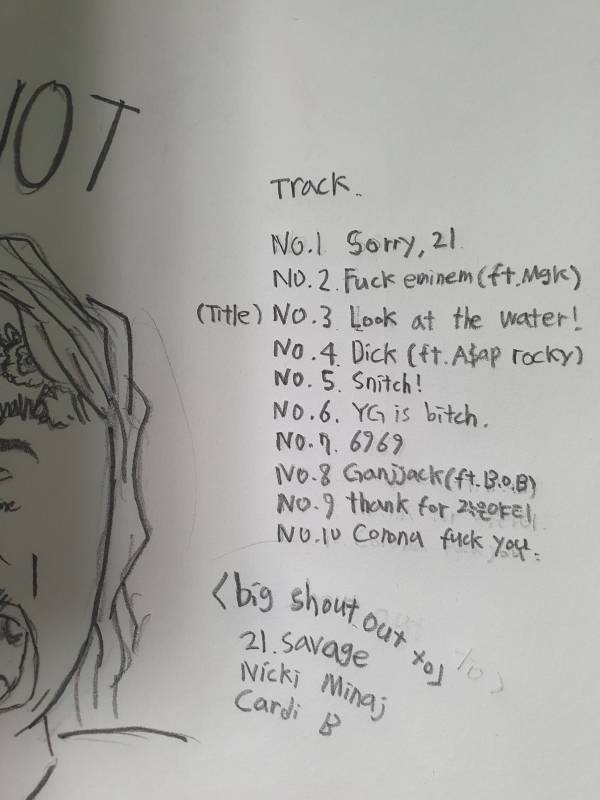 IOT
Track.
No.1 Sorry, 21
No.2. Fuck eminem (ft. Mgk)
(Title) No.3. Look at the water!
No.4. Dick (ft. A$ap rocky)
No.5. Snitch!
No.6. YG is bitch.
No.7. 6969
No.8 Ganjjack (ft. B.O.B)
No.9 thank for
No.10 Corona fuck you.
<big shout out to>
21. Savage
Nicki Minaj
Cardi B